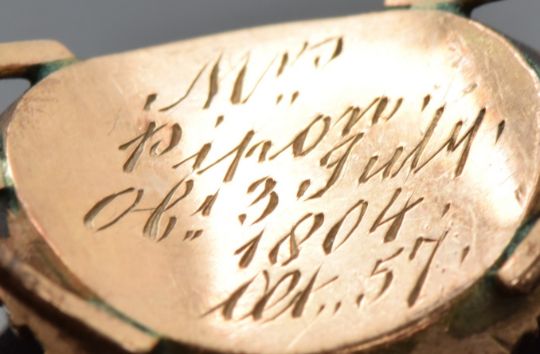 Mrs
Pipon.
Ob: 3 July.
1804.
Æt. 57.